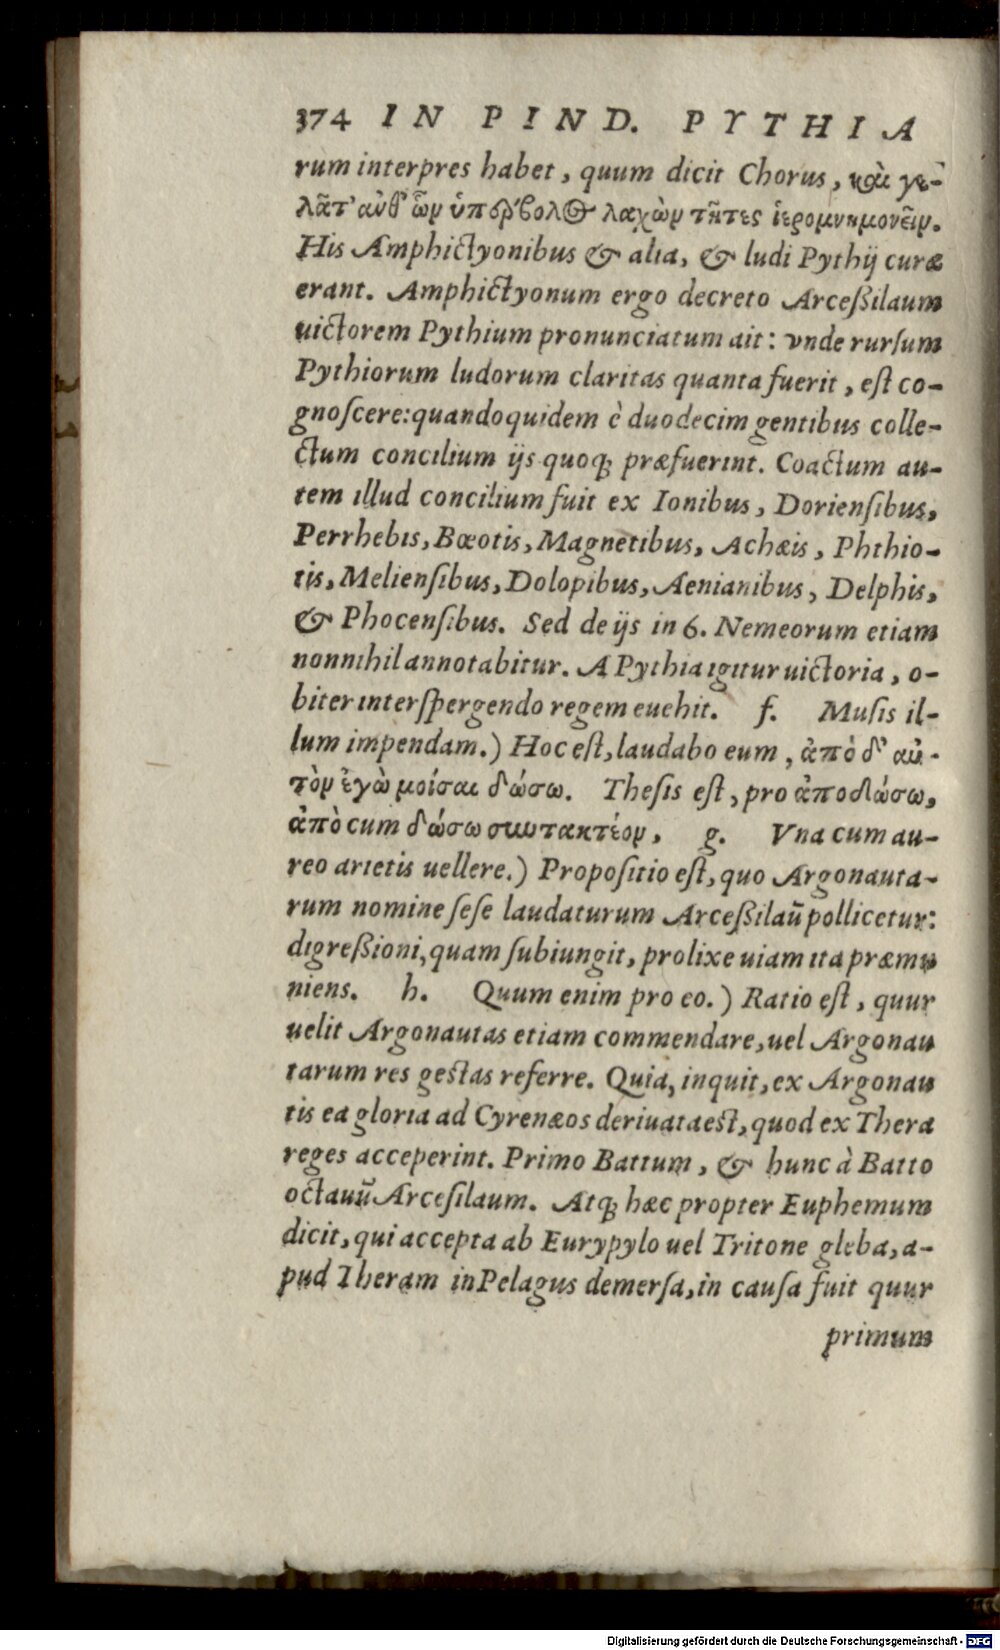 374 IN PIND. PYTHIA
rum interpres habet, quum dicit Chorus, καὶ γε-
λᾶτ' ἀνθ' ὧν ὑπέρβολος λαχὼν τῆτες ἱερομνημονεῖν.
His Amphictyonibus & alia, & ludi Pythij curæ
erant. Amphictyonum ergo decreto Arceßilaum
uictorem Pythium pronunciatum ait: vnde rurſum
Pythiorum ludorum claritas quanta fuerit, eſt co-
gnoſcere: quandoquidem è duodecim gentibus colle-
ctum concilium ijs quoq; præfuerint. Coactum au-
tem illud concilium fuit ex Ionibus, Dorienſibus,
Perrhebis, Bœotis, Magnetibus, Achæis, Phthio-
tis, Melienſibus, Dolopibus, Aenianibus, Delphis,
& Phocenſibus. Sed de ijs in 6. Nemeorum etiam
nonnihil annotabitur. A Pythia igitur uictoria, o-
biter interſpergendo regem euehit. f. Muſis il-
lum impendam.) Hoc eſt, laudabo eum, ἀπὸ δ' αὐ-
τὸν ἐγὼ μοίσαι δώσω. Theſis eſt, pro ἀποδώσω,
ἀπὸ cum δώσω συντακτέον. g. Vna cum au-
reo arietis uellere.) Propoſitio eſt, quo Argonauta-
rum nomine ſeſe laudaturum Arceßilaū pollicetur:
digreßioni, quam ſubiungit, prolixe uiam ita præmu
niens. h. Quum enim pro eo.) Ratio eſt, quur
uelit Argonautas etiam commendare, uel Argonau
tarum res geſtas referre. Quia, inquit, ex Argonau
tis ea gloria ad Cyrenæos deriuata eſt, quod ex Thera
reges acceperint. Primo Battum, & hunc à Batto
octauū Arceſilaum. Atq; hæc propter Euphemum
dicit, qui accepta ab Eurypylo uel Tritone gleba, a-
pud Theram in Pelagus demerſa, in cauſa fuit quur
primum
Digitalisierung gefördert durch die Deutsche Forschungsgemeinschaft - DFG